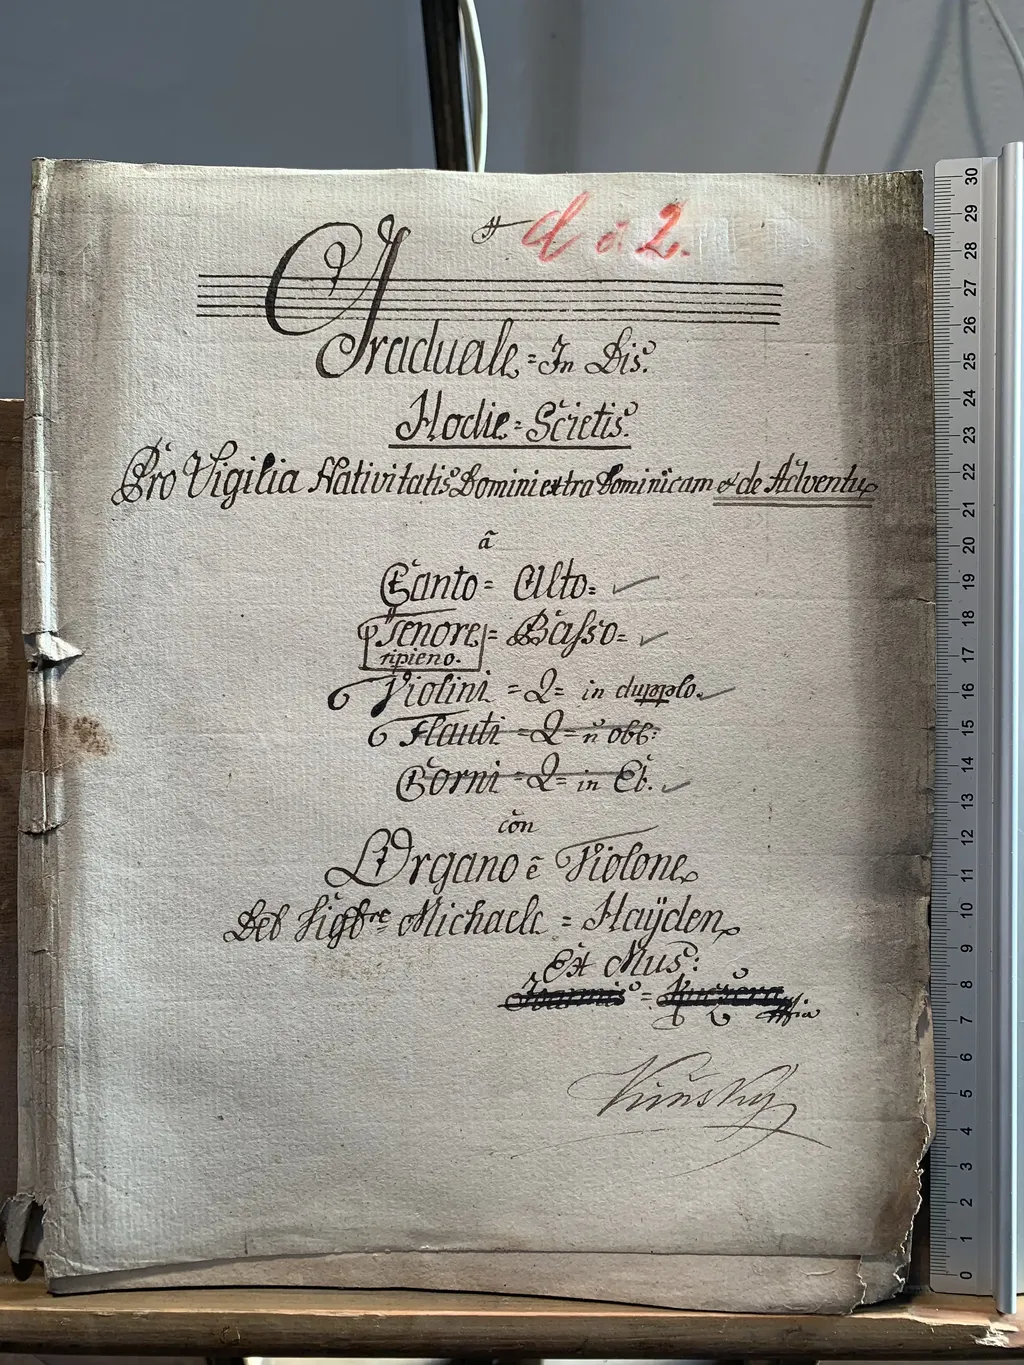 d et 2.
Graduale = In Dis.
Hodie = Scietis.
Pro Vigilia Nativitatis Domini extra Dominicam et de Adventu
ã
Canto = Alto =
Tenore = Basso =
ripieno.
Violini = 2 = in dupplo.
Flauti = 2 = ñ obb:
Corni = 2 = in Eb.
con
L'Organo ẽ Violone
Del Sigre Michaele = Haÿden
Ex Mus:
30
29
28
27
26
25
24
23
22
21
20
19
18
17
16
15
14
13
12
11
10
9
8
7
6
5
4
3
2
1
0